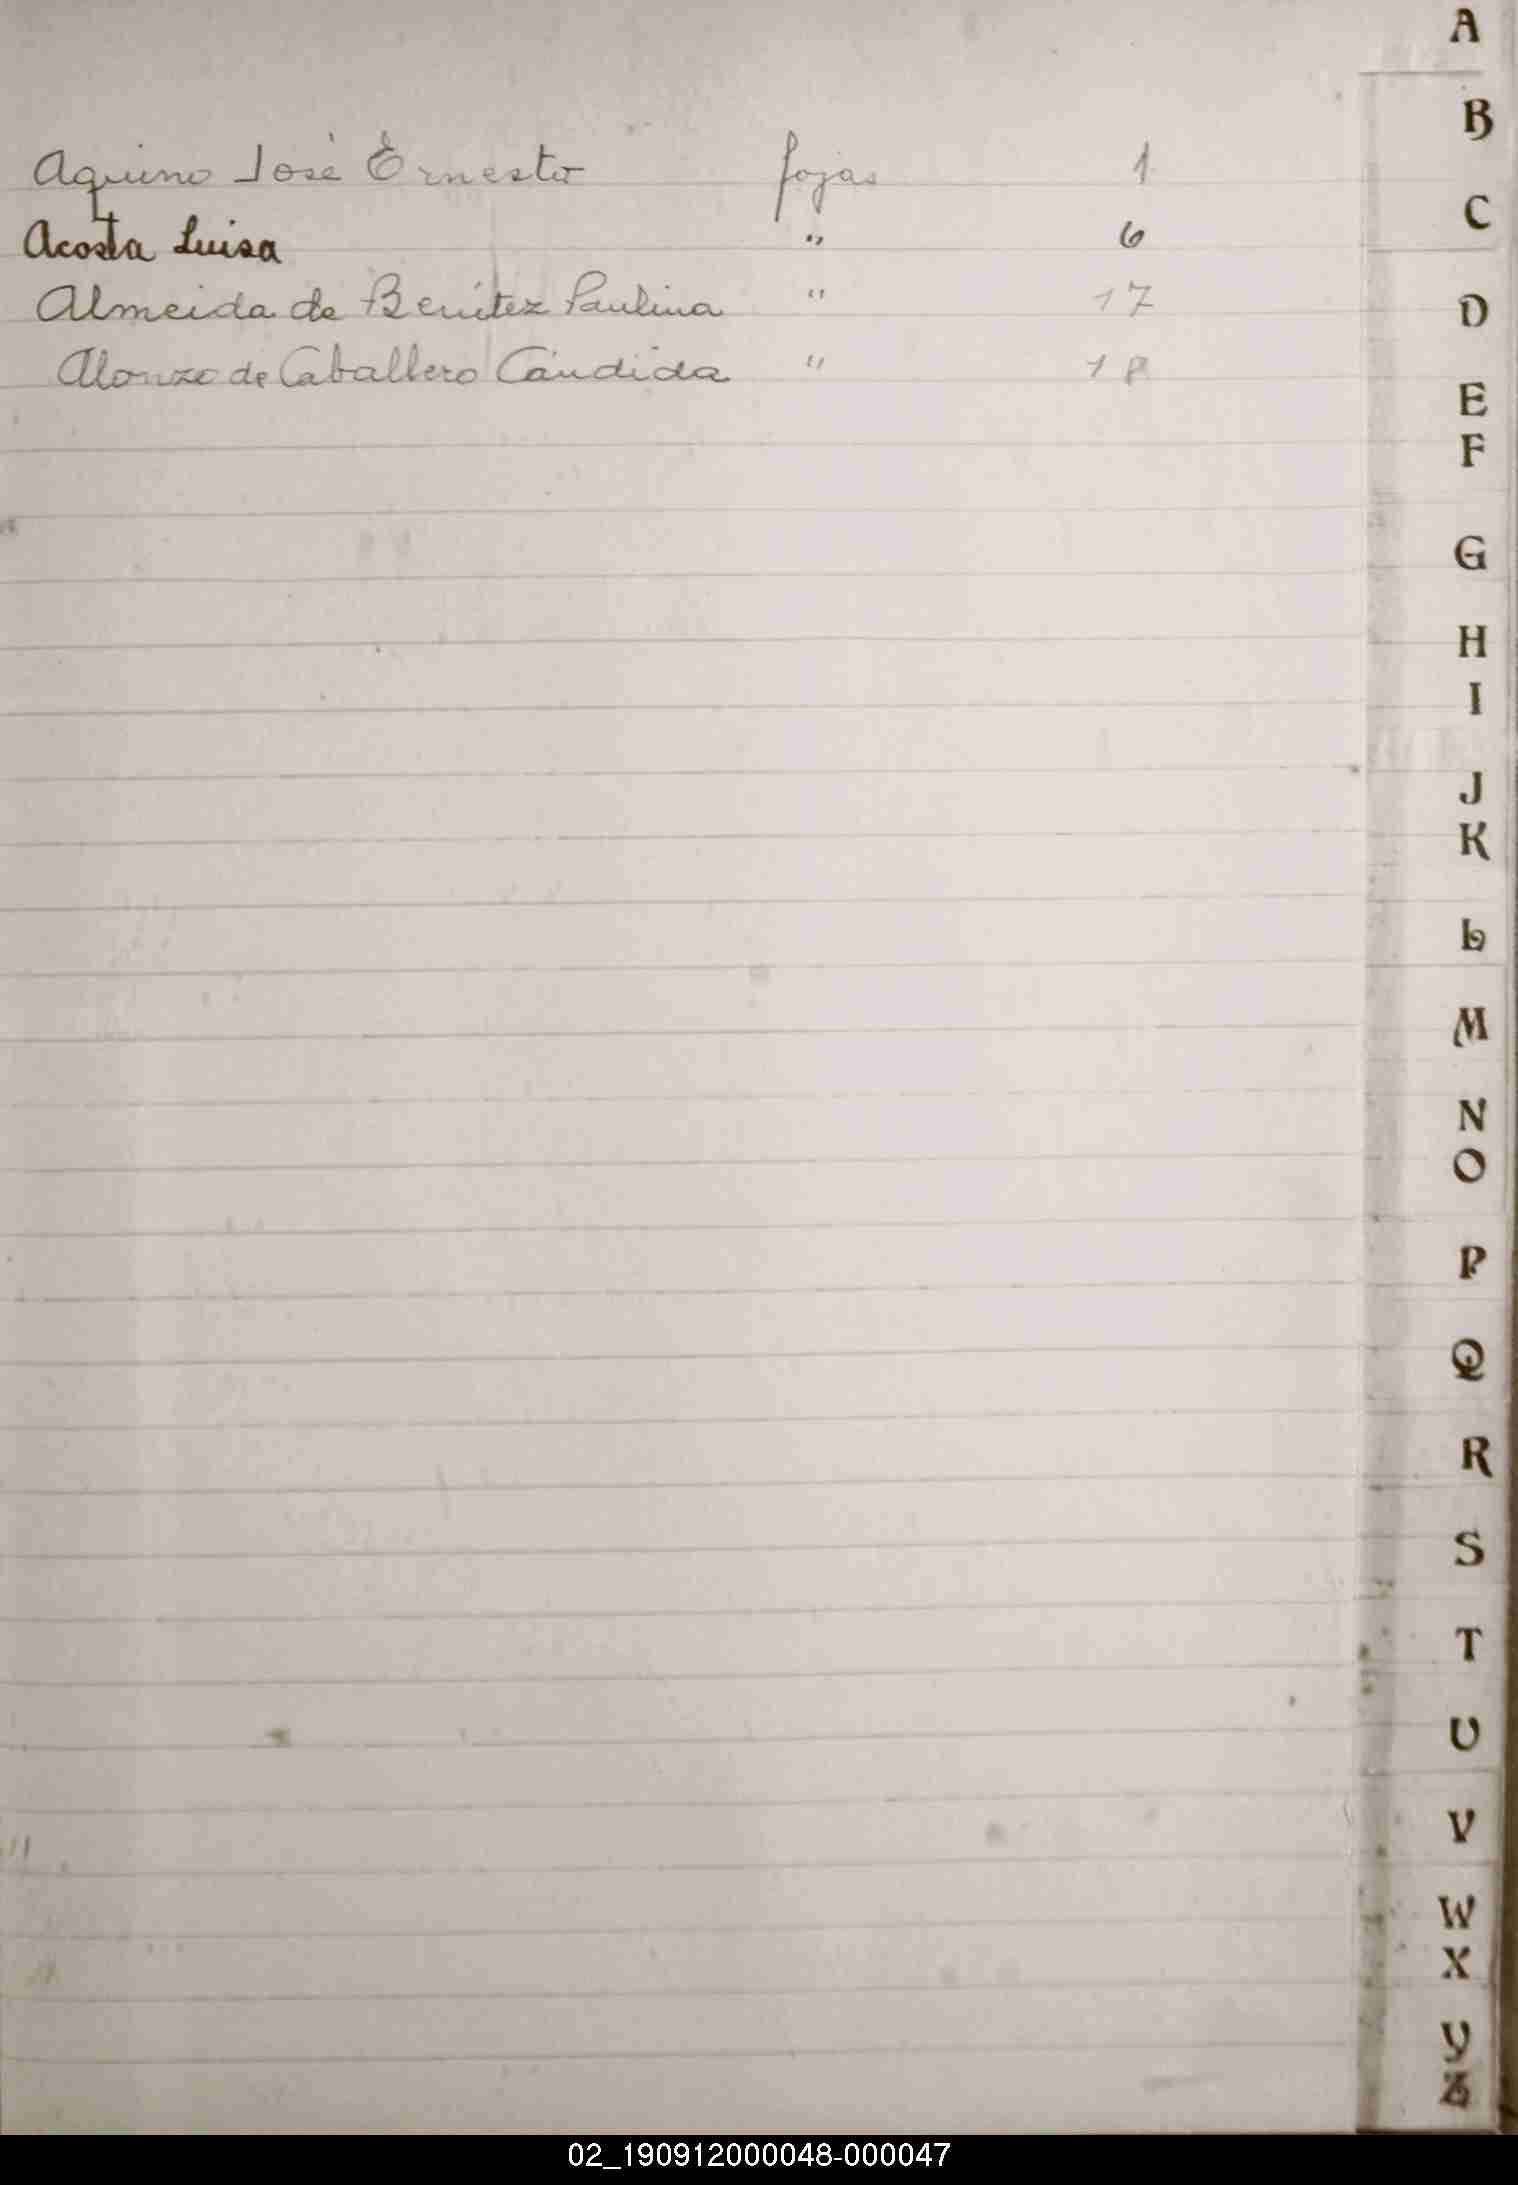 A
B
Aquino José Ernesto fojas 1
C
Acosta Luisa " 6
Almeida de Benítez Paulina " 17
D
Alonzo de Caballero Cándida " 18
E
F
G
H
I
J
K
L
M
N
O
P
Q
R
S
T
U
V
W
X
Y
Z
02_190912000048-000047